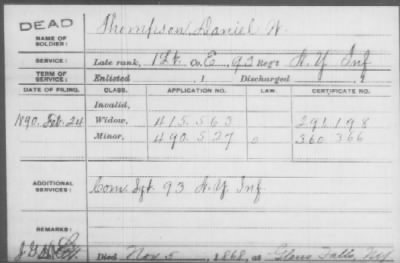 DEAD
NAME OF SOLDIER: Thompson, Daniel W.
SERVICE: Late rank, 1 Lt. Co. E, 93 Reg't N.Y. Inf
TERM OF SERVICE: Enlisted , 1 Discharged , 1
DATE OF FILING. CLASS. APPLICATION NO. LAW. CERTIFICATE NO.
Invalid,
1890. Feb. 24 Widow, 415.563 291.198
Minor, 490.527 0 360.366
ADDITIONAL SERVICES: Com Sgt 93 N.Y. Inf
REMARKS:
Died Nov 5, 1868, at Glens Falls, N.Y.